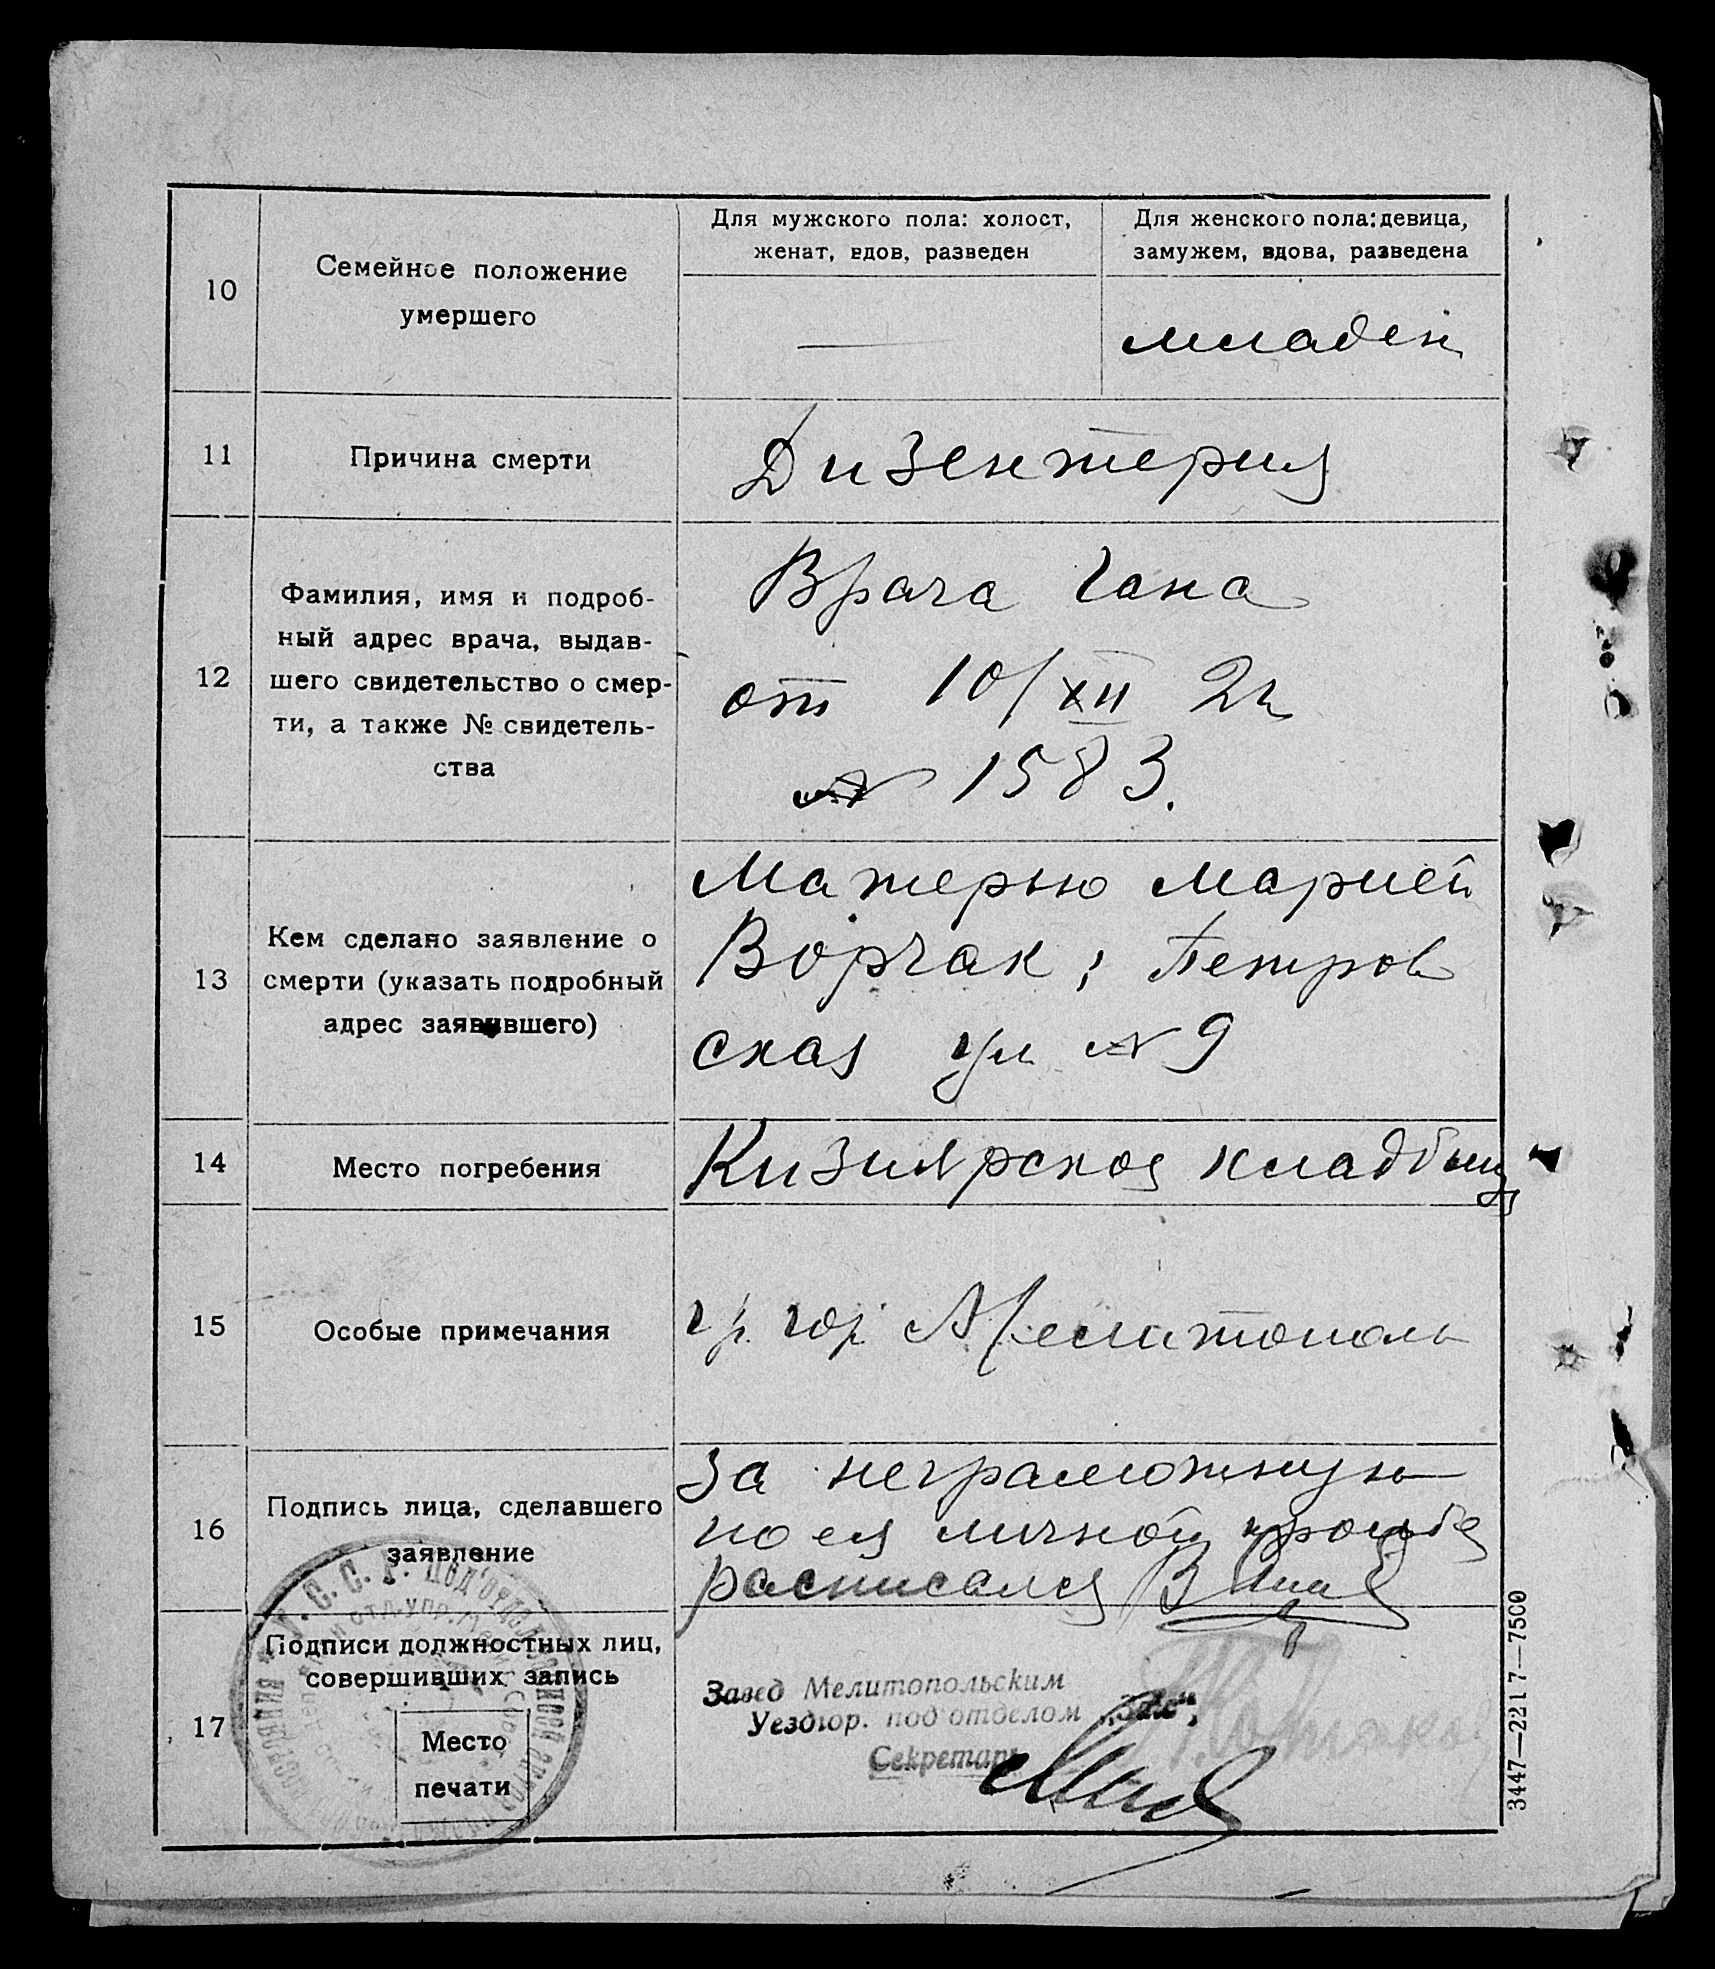 10
Семейное положение
умершего
Для мужского пола: холост,
женат, вдов, разведен
Для женского пола: девица,
замужем, вдова, разведена
младен
11
Причина смерти
Дизентерия
12
Фамилия, имя и подроб-
ный адрес врача, выдав-
шего свидетельство о смер-
ти, а также № свидетель-
ства
Врача Гана
от 10/XII 2
№ 1583.
13
Кем сделано заявление о
смерти (указать подробный
адрес заявившего)
Матерью Марией
Ворчак; Петров
ская ул № 9
14
Место погребения
Кизиярское кладбищ
15
Особые примечания
гр. гор. Мелитополь
16
Подпись лица, сделавшего
заявление
За неграмотную
по ея личной просьбе
расписался
17
Подписи должностных лиц,
совершивших запись
Место
печати
Завед Мелитопольским
Уездюр. под'отделом „Загс“,
Секретарь
3447—2217—7500